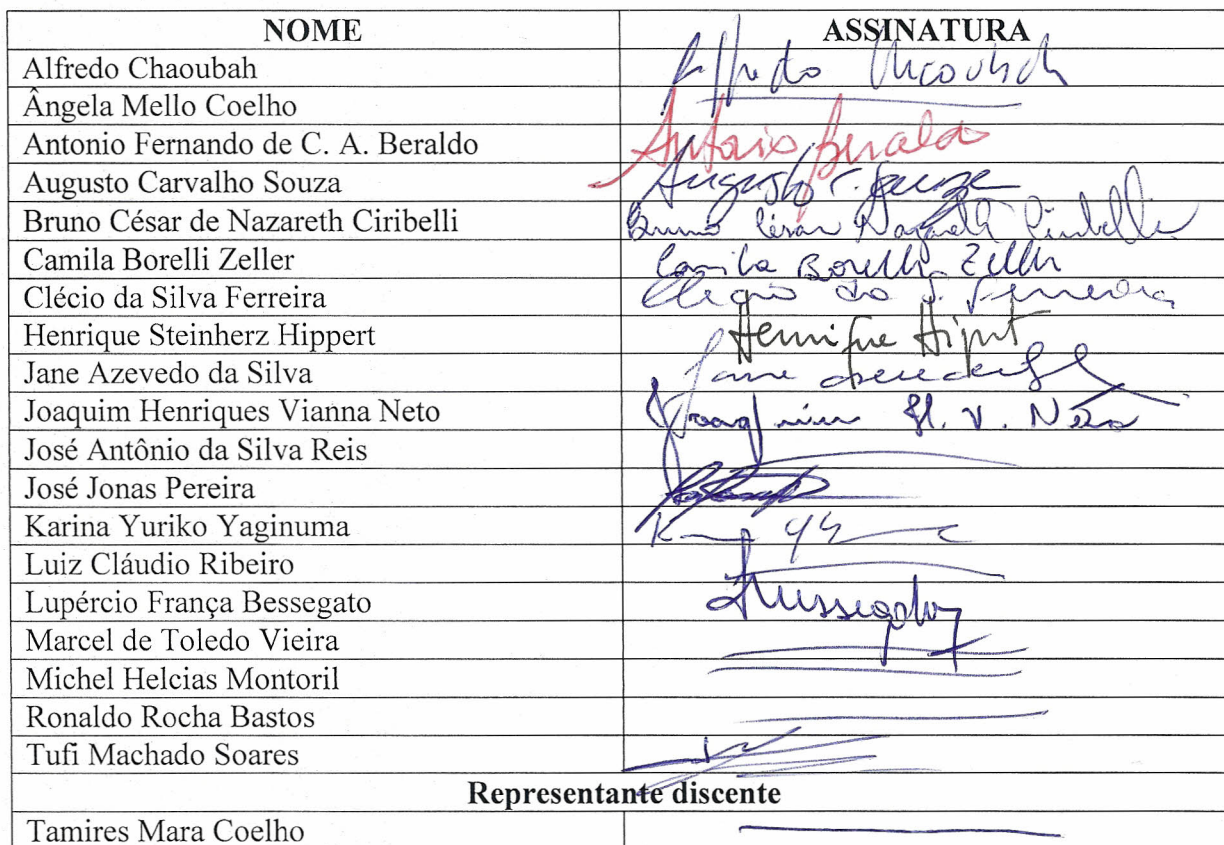 NOME ASSINATURA
Alfredo Chaoubah Alfredo Chaoubah
Ângela Mello Coelho
Antonio Fernando de C. A. Beraldo Antonio Beraldo
Augusto Carvalho Souza Augusto C. Souza
Bruno César de Nazareth Ciribelli Bruno César Nazareth Ciribelli
Camila Borelli Zeller Camila Borelli Zeller
Clécio da Silva Ferreira Clécio da S. Ferreira
Henrique Steinherz Hippert Henrique Hippert
Jane Azevedo da Silva Jane
Joaquim Henriques Vianna Neto Joaquim H. V. Neto
José Antônio da Silva Reis
José Jonas Pereira
Karina Yuriko Yaginuma
Luiz Cláudio Ribeiro
Lupércio França Bessegato
Marcel de Toledo Vieira
Michel Helcias Montoril
Ronaldo Rocha Bastos
Tufi Machado Soares
Representante discente
Tamires Mara Coelho